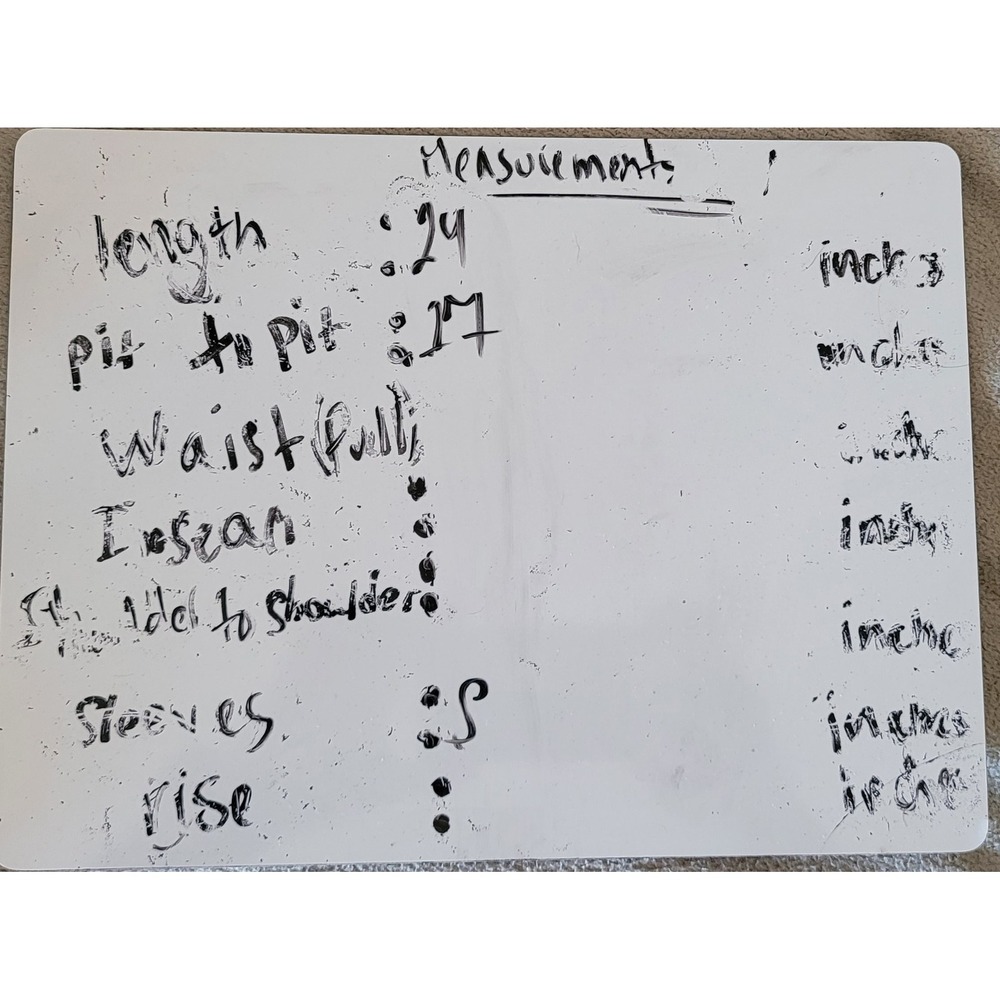 Measurements
length : 24 inches
pit to pit : 17 inches
Waist (full) : inches
Inseam : inches
to shoulder : inches
Sleeves : S inches
rise : inches